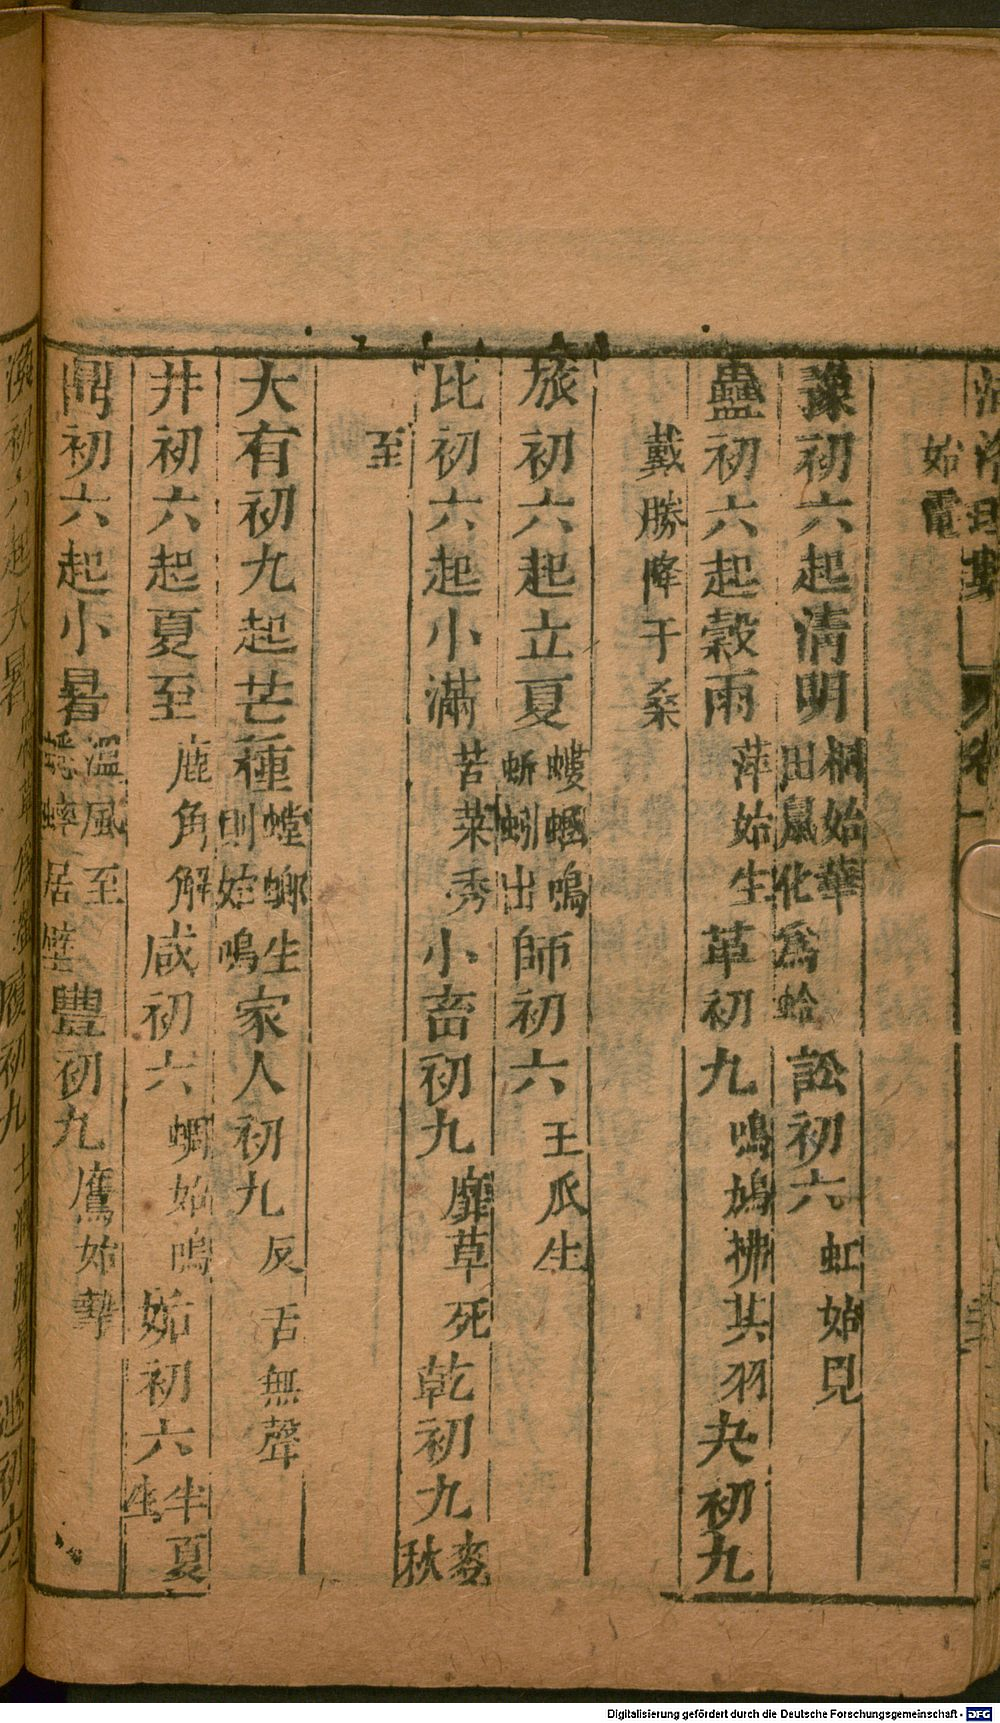 始電
豫初六起清明桐始華田鼠化為蛤訟初六虹始見
蠱初六起穀雨萍始生革初九鳴鳩拂其羽夬初九
戴勝降于桑
旅初六起立夏螻蟈鳴蚯蚓出師初六王瓜生
比初六起小滿苦菜秀小畜初九靡草死乾初九麥秋
至
大有初九起芒種螳螂生鵙始鳴家人初九反舌無聲
井初六起夏至鹿角解咸初六蜩始鳴姤初六半夏生
鼎初六起小暑溫風至蟋蟀居壁豐初九鷹始摯
初六起大暑 履初九
Digitalisierung gefördert durch die Deutsche Forschungsgemeinschaft - DFG